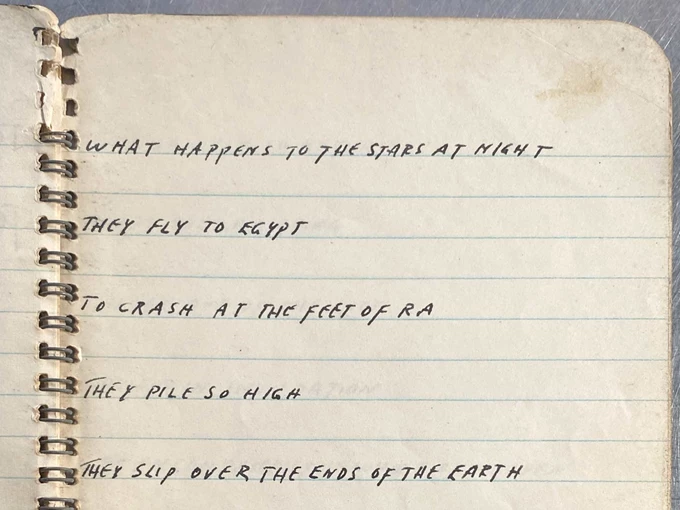 WHAT HAPPENS TO THE STARS AT NIGHT
THEY FLY TO EGYPT
TO CRASH AT THE FEET OF RA
THEY PILE SO HIGH
THEY SLIP OVER THE ENDS OF THE EARTH